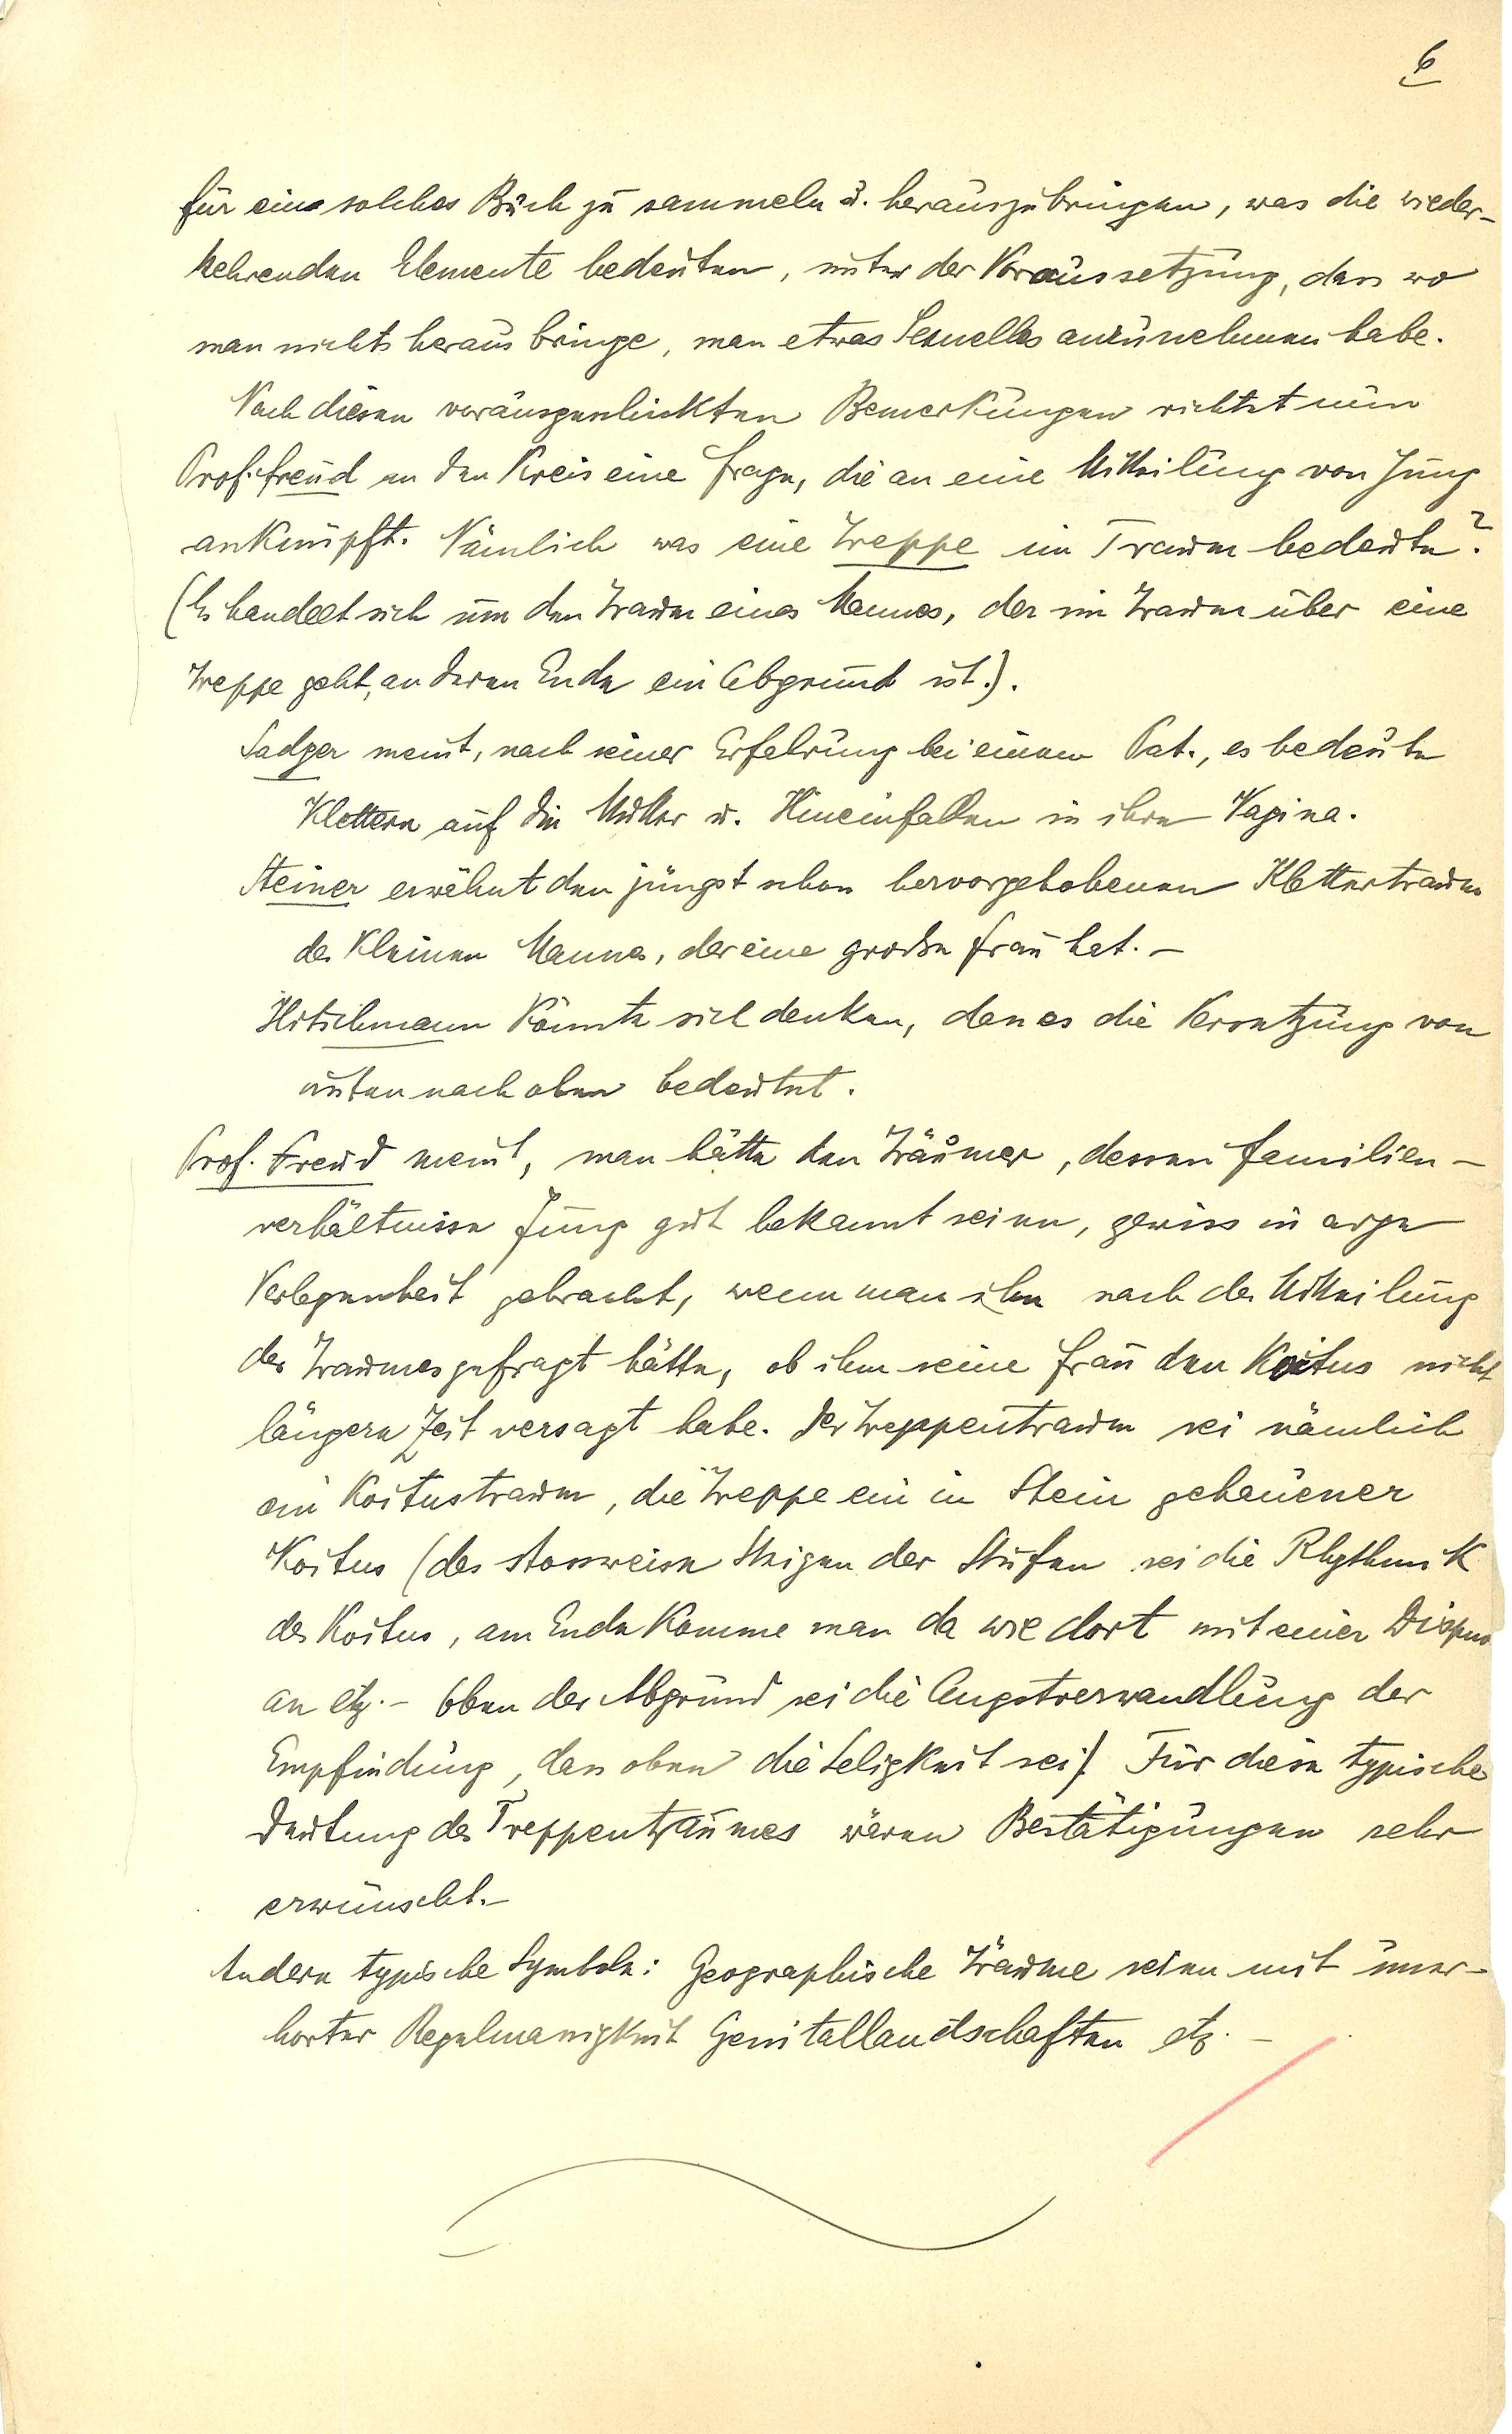 6
für eine solches Buch zu sammeln u. herauszubringen, was die wieder-
kehrenden Elemente bedeuten, unter der Voraussetzung, dass wo
man nichts herausbringe, man etwas Sexuelles anzunehmen habe.
Nach diesen vorausgeschickten Bemerkungen richtet nun
Prof. Freud an den Kreis eine Frage, die an eine Mitteilung von Jung
anknüpft. Nämlich was eine Treppe im Traum bedeute?
(Es handelt sich um den Traum eines Mannes, der im Traum über eine
Treppe geht, an deren Ende ein Abgrund ist.).
Sadger meint, nach seiner Erfahrung bei einem Pat., es bedeute
Klettern auf die Mutter u. Hineinfallen in ihre Vagina.
Steiner erwähnt den jüngst schon hervorgehobenen Klettertraum
des kleinen Mannes, der eine große Frau hat. –
Hitschmann könnte sich denken, dass es die Versetzung von
unten nach oben bedeutet.
Prof. Freud meint, man hätte den Träumer, dessen Familien-
verhältnisse Jung gut bekannt seien, gewiss in arge
Verlegenheit gebracht, wenn man ihn nach der Mitteilung
des Traumes gefragt hätte, ob ihm seine Frau den Koitus nicht
längere Zeit versagt habe. Der Treppentraum sei nämlich
ein Koitustraum, die Treppe ein in Stein gehauener
Koitus (das stossweise Steigen der Stufen sei die Rhythmik
des Koitus, am Ende komme man da wie dort mit einer Dispno
an etz. – Oben der Abgrund sei die Angstverwandlung der
Empfindung, dass oben die Seligkeit sei). Für diese typische
Deutung des Treppentraumes wären Bestätigungen sehr
erwünscht. –
Andere typische Symbole: Geographische Träume seien mit uner-
hörter Regelmässigkeit Genitallandschaften etz. –